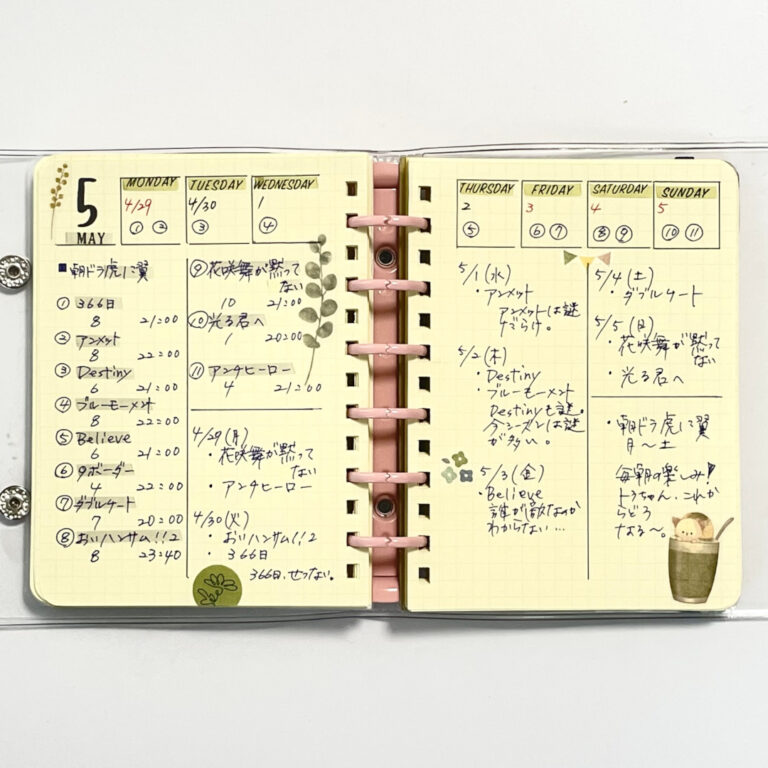 5
MAY
MONDAY
4/29
① ②
TUESDAY
4/30
③
WEDNESDAY
1
④
■ 朝ドラ虎に翼
① 366日
8 21:00
② アンメット
8 22:00
③ Destiny
6 21:00
④ ブルーモーメント
4 22:00
⑤ Believe
6 21:00
⑥ 9ボーダー
4 22:00
⑦ ダブルケート
7 20:00
⑧ おいハンサム!!2
8 23:40
⑨ 花咲舞が黙って
ない
10 21:00
⑩ 光る君へ
1 20:00
⑪ アンチヒーロー
4 21:00
4/29(月)
・花咲舞が黙って
ない
・アンチヒーロー
4/30(火)
・おいハンサム!!2
・366日
366日、せつない。
THURSDAY
2
⑤
FRIDAY
3
⑥ ⑦
SATURDAY
4
⑧ ⑨
SUNDAY
5
⑩ ⑪
5/1(水)
・アンメット
アンメットは謎
だらけ。
5/2(木)
・Destiny
・ブルーモーメント
Destinyも謎。
今シーズンは謎
が多い。
5/3(金)
・Believe
誰が敵なのか
わからない…
5/4(土)
・ダブルケート
5/5(日)
・花咲舞が黙って
ない
・光る君へ
・朝ドラ虎に翼
月〜土
毎朝の楽しみ!
トラちゃん、これか
らどう
なる〜。